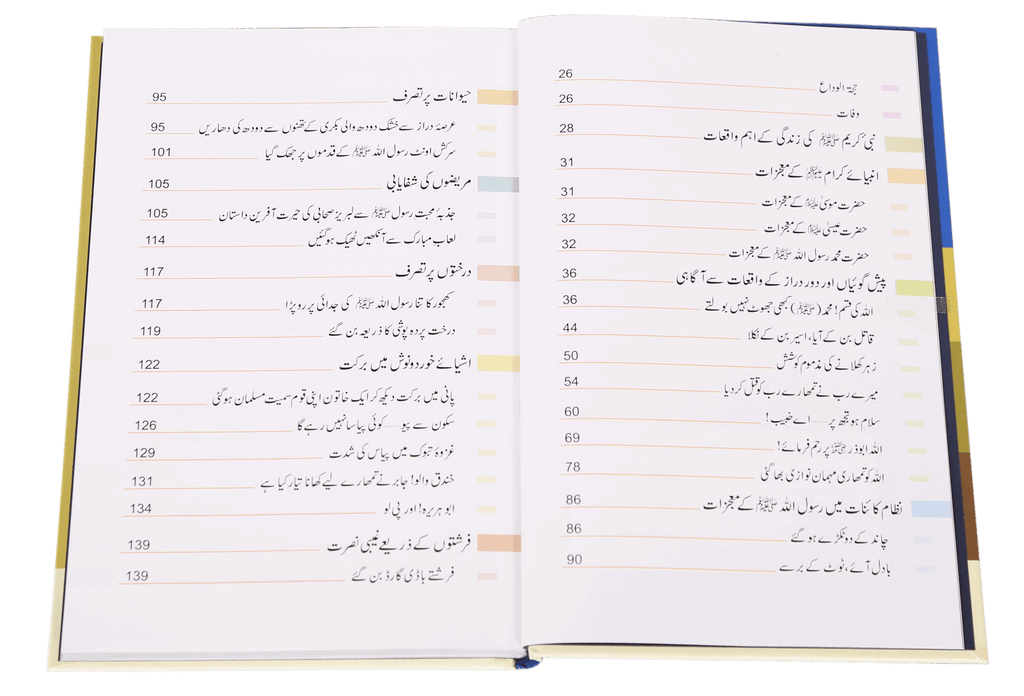 حجۃ الوداع 26
وفات 26
نبی کریم ﷺ کی زندگی کے اہم واقعات 28
انبیائے کرام علیہم السلام کے معجزات 31
حضرت موسیٰ علیہ السلام کے معجزات 31
حضرت عیسیٰ علیہ السلام کے معجزات 32
حضرت محمد رسول اللہ ﷺ کے معجزات 32
پیش گوئیاں اور دور دراز کے واقعات سے آگاہی 36
اللہ کی قسم! محمد (ﷺ) کبھی جھوٹ نہیں بولتے 36
قاتل بن کے آیا، اسیر بن کے نکلا 44
زہر کھلانے کی مذموم کوشش 50
میرے رب نے تمھارے رب کو قتل کر دیا 54
سلام ہو تجھ پر...... اے خبیب! 60
اللہ ابوذر رضی اللہ عنہ پر رحم فرمائے! 69
اللہ کو تمھاری مہمان نوازی بھا گئی 78
نظام کائنات میں رسول اللہ ﷺ کے معجزات 86
چاند کے دو ٹکڑے ہو گئے 86
بادل آئے، ٹوٹ کے برسے 90
حیوانات پر تصرف 95
عرصۂ دراز سے خشک دودھ والی بکری کے تھنوں سے دودھ کی دھاریں 95
سرکش اونٹ رسول اللہ ﷺ کے قدموں پر جھک گیا 101
مریضوں کی شفایابی 105
جذبۂ محبت رسول ﷺ سے لبریز صحابی کی حیرت آفرین داستان 105
لعاب مبارک سے آنکھیں ٹھیک ہوگئیں 114
درختوں پر تصرف 117
کھجور کا تنا رسول اللہ ﷺ کی جدائی پر رو پڑا 117
درخت پردہ پوشی کا ذریعہ بن گئے 119
اشیائے خورد و نوش میں برکت 122
پانی میں برکت دیکھ کر ایک خاتون اپنی قوم سمیت مسلمان ہوگئی 122
سکون سے پیو...... کوئی پیاسا نہیں رہے گا 126
غزوۂ تبوک میں پیاس کی شدت 129
خندق والو! جابر نے تمھارے لیے کھانا تیار کیا ہے 131
ابو ہریرہ! اور پی لو 134
فرشتوں کے ذریعے غیبی نصرت 139
فرشتے باڈی گارڈ بن گئے 139